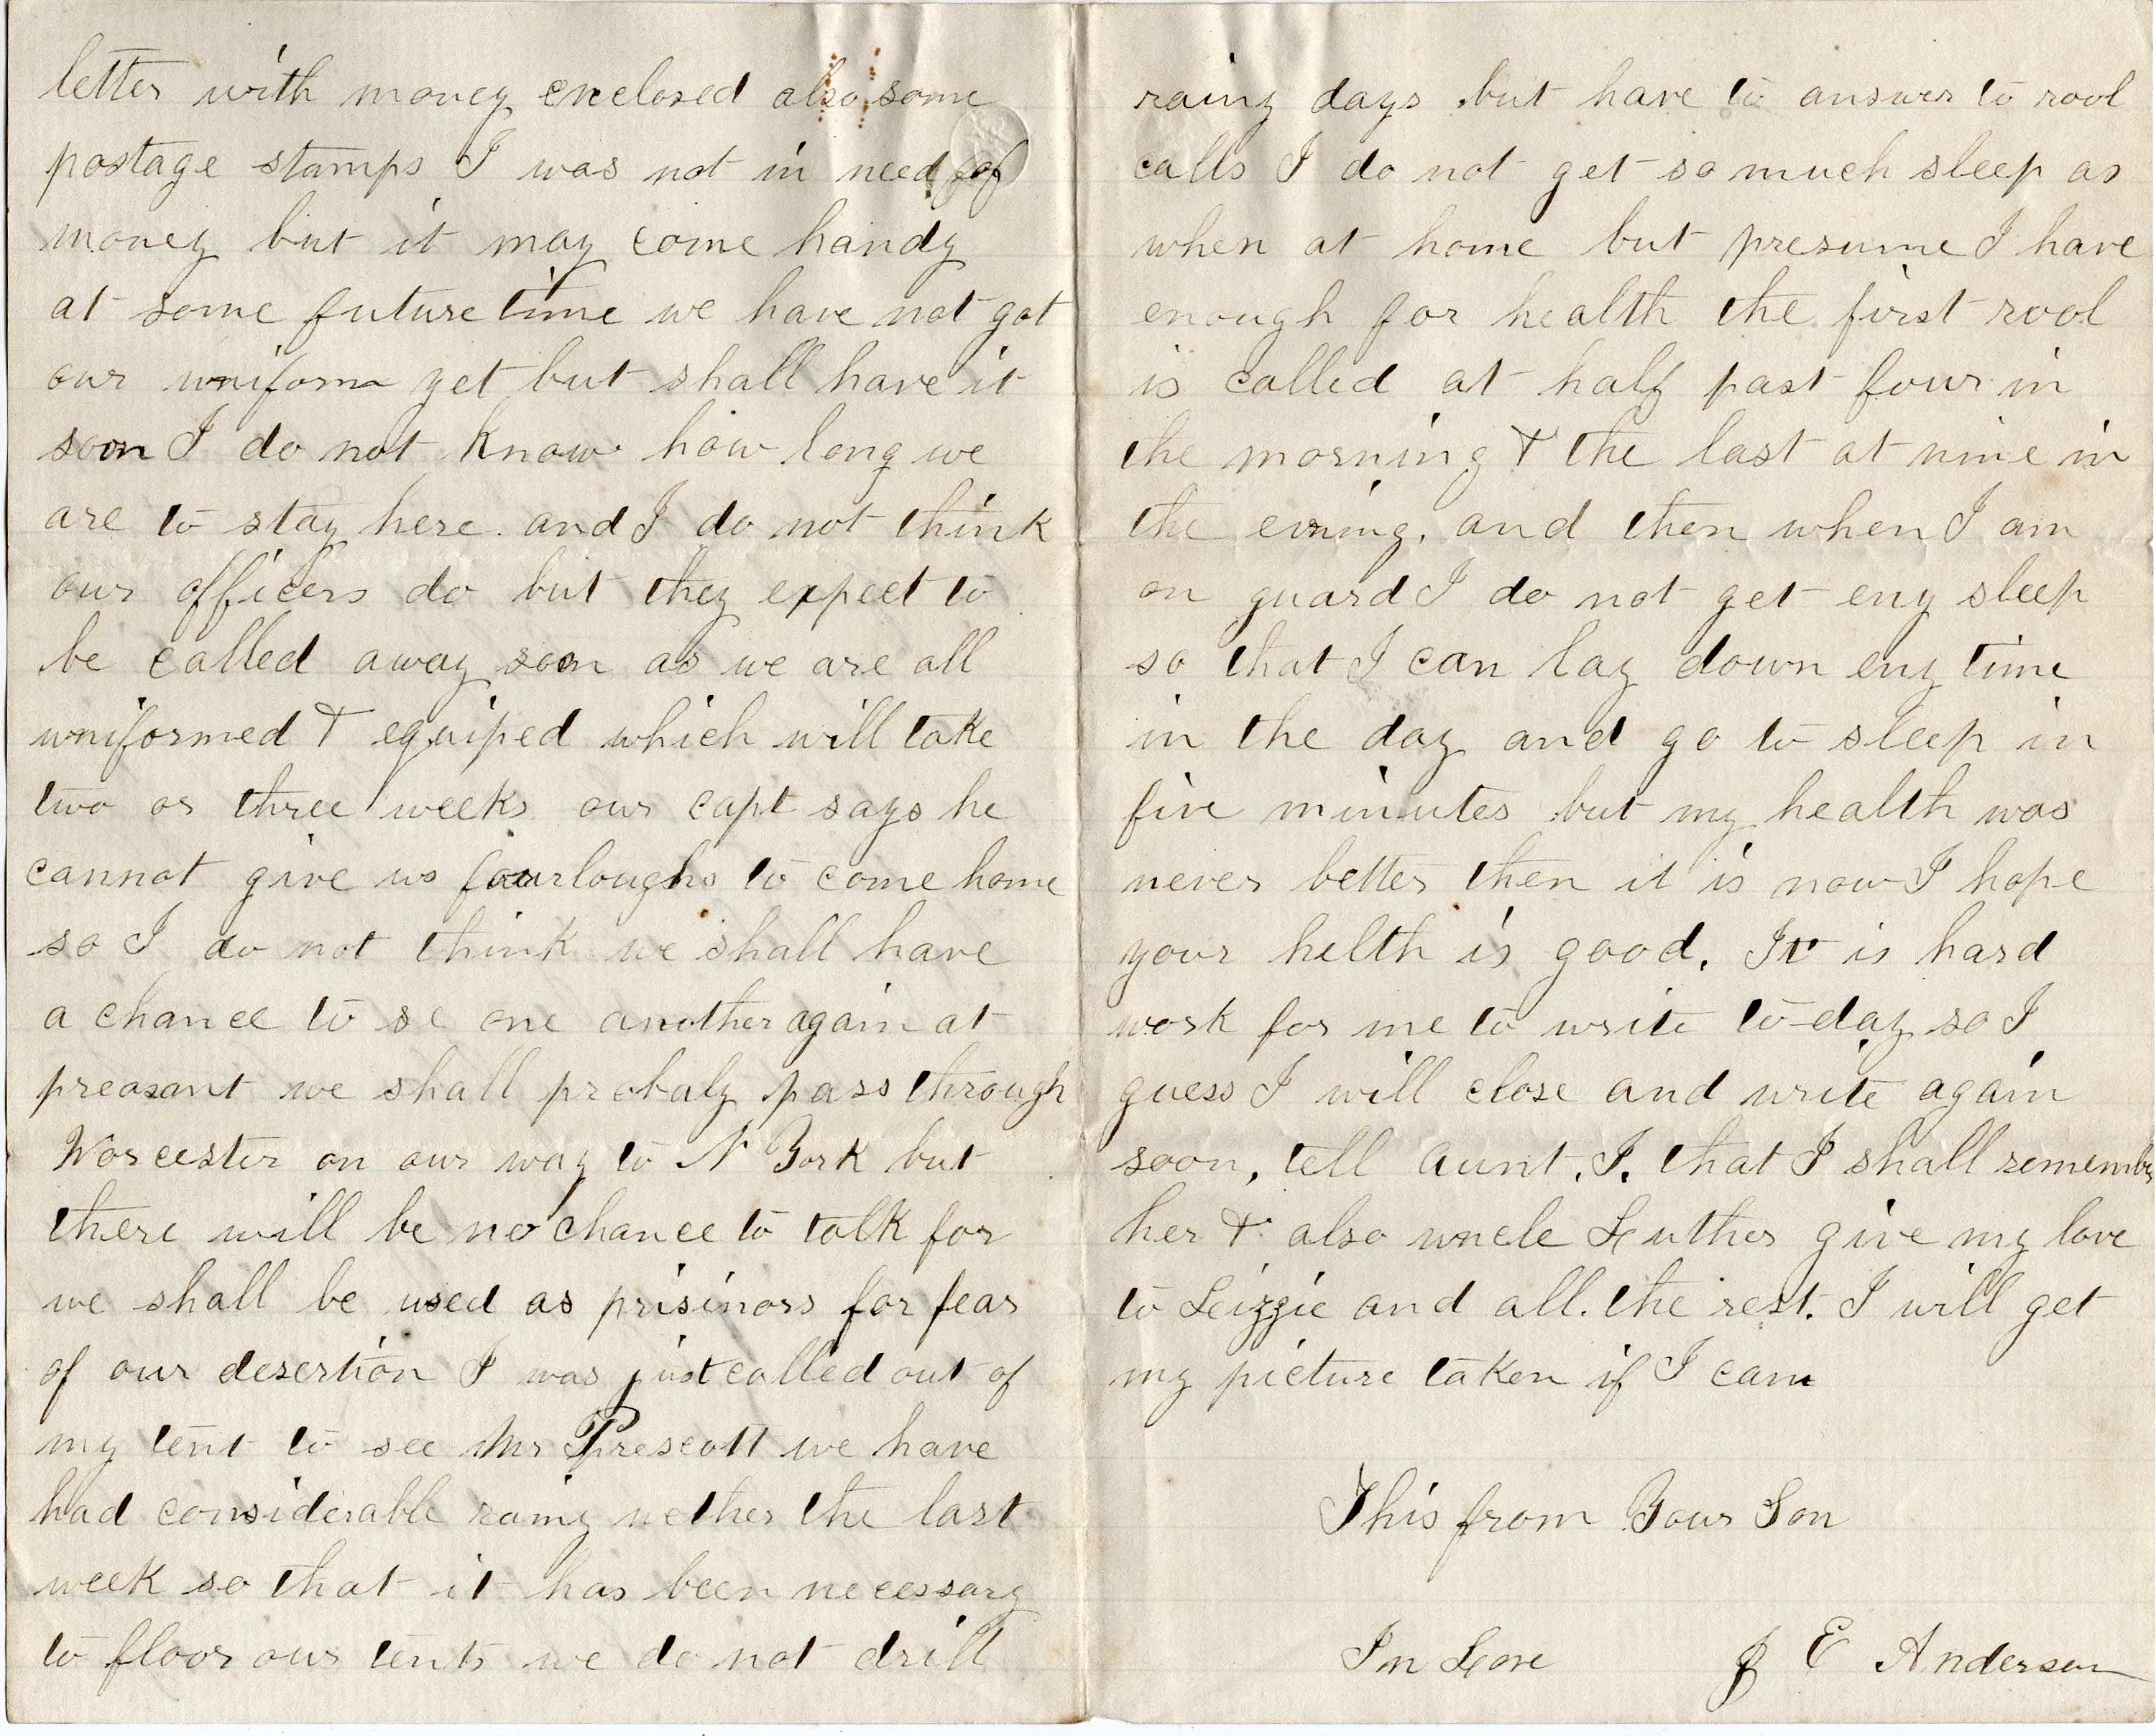 letter with money enclosed also some
postage stamps I was not in need of
money but it may come handy
at some future time we have not got
our uniform yet but shall have it
soon I do not know how long we
are to stay here. and I do not think
our officers do but they expect to
be called away soon as we are all
uniformed & equiped which will take
two or three weeks our capt says he
cannot give us fourloughs to come home
so I do not think we shall have
a chance to se one another again at
preasant we shall probaly pass through
Worcester on our way to N York but
there will be no chance to talk for
we shall be used as prisinors for fear
of our desertion I was just called out of
my tent to see Mr Prescott we have
had considerable rainy wether the last
week so that it has been necessary
to floor our tents we do not drill
rainy days but have to answer to rool
calls I do not get so much sleep as
when at home but presume I have
enough for health the first rool
is called at half past four in
the morning & the last at nine in
the evning. and then when I am
on guard I do not get eny sleep
so that I can lay down eny time
in the day and go to sleep in
five minutes but my health was
never better then it is now I hope
your helth is good. It is hard
work for me to write to-day so I
guess I will close and write again
soon, tell Aunt. I. that I shall remember
her & also uncle Luther give my love
to Lizzie and all. the rest. I will get
my picture taken if I can
This from Your Son
In Love J E Anderson